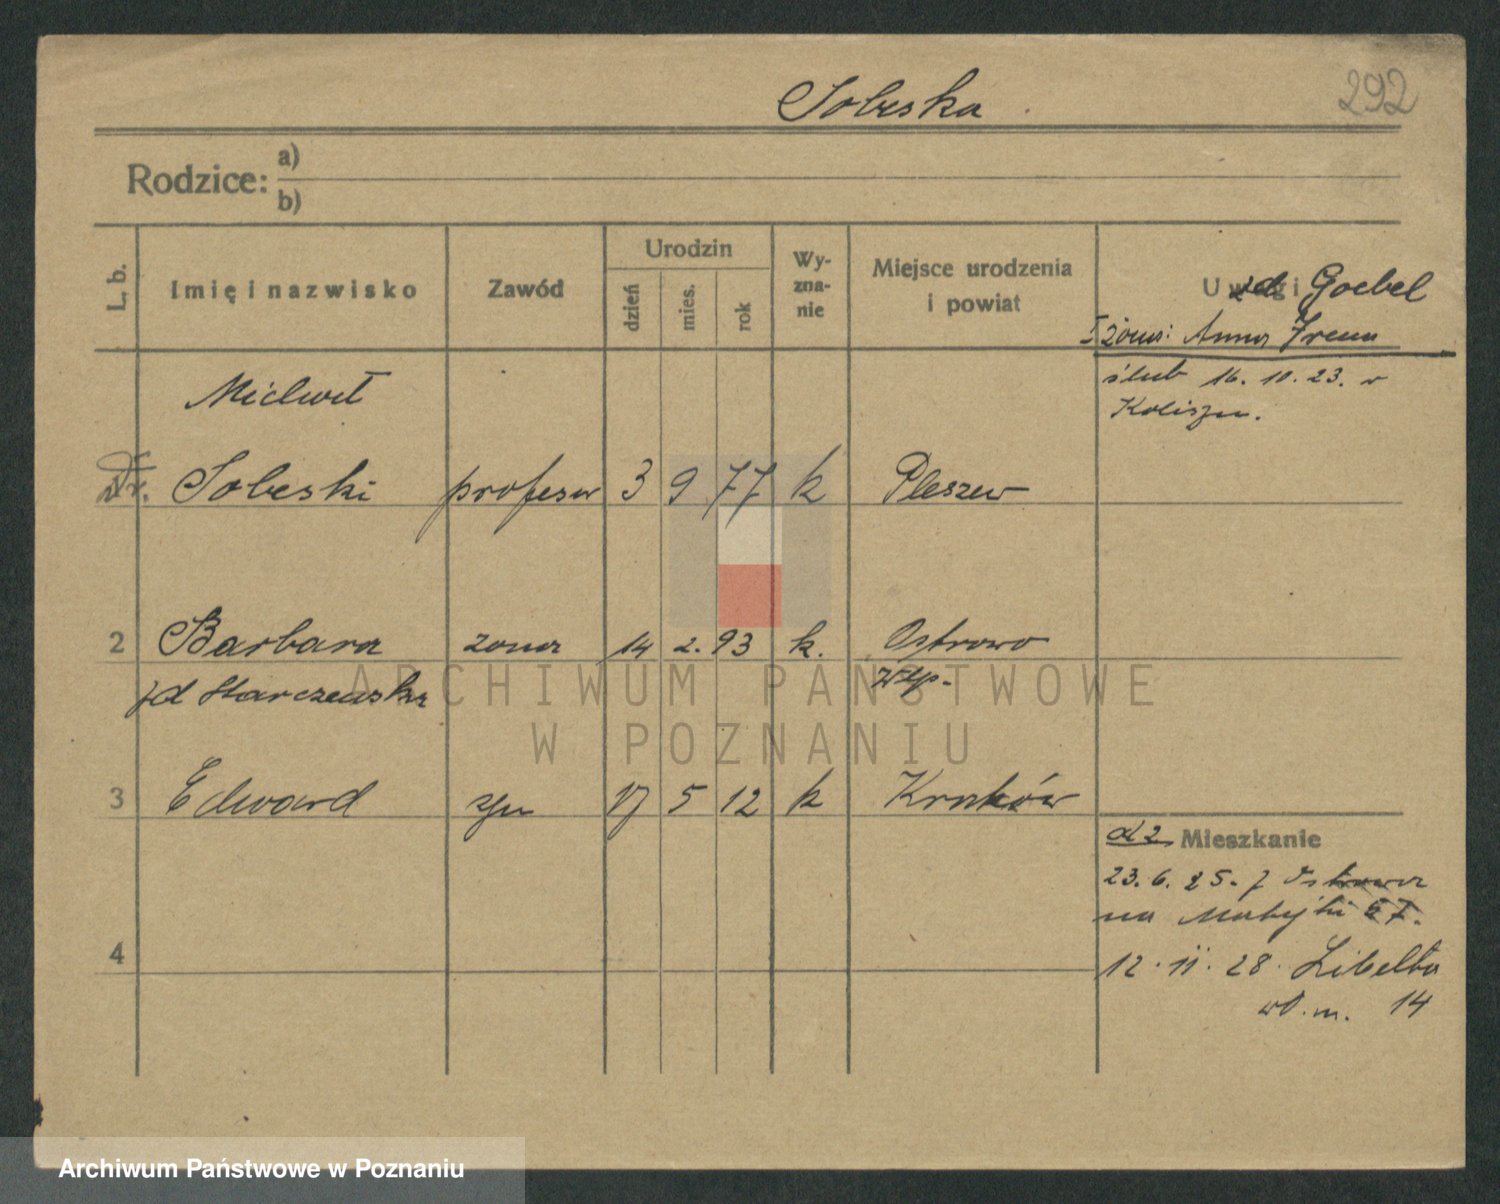 Sobeska
292
Rodzice: a)
b)
L. b. Imię i nazwisko Zawód Urodzin dzień mies. rok Wy-zna-nie Miejsce urodzenia i powiat Uwagi
zd Goebel
I żona: Anna Irena
ślub 16. 10. 23. w
Kaliszu.
Michał
Dr. Sobeski profesor 3 9 77 k Pleszew
2 Barbara żona 14 2. 93 k. Ostrowo
zd Starczewska Wlkp.
3 Edward syn 17 5 12 k Kraków
Mieszkanie
23. 6. 25. z Ostrowa
na Matejki
4
12. 11. 28. Libelta
wł. m. 14
ARCHIWUM PAŃSTWOWE
W POZNANIU
Archiwum Państwowe w Poznaniu